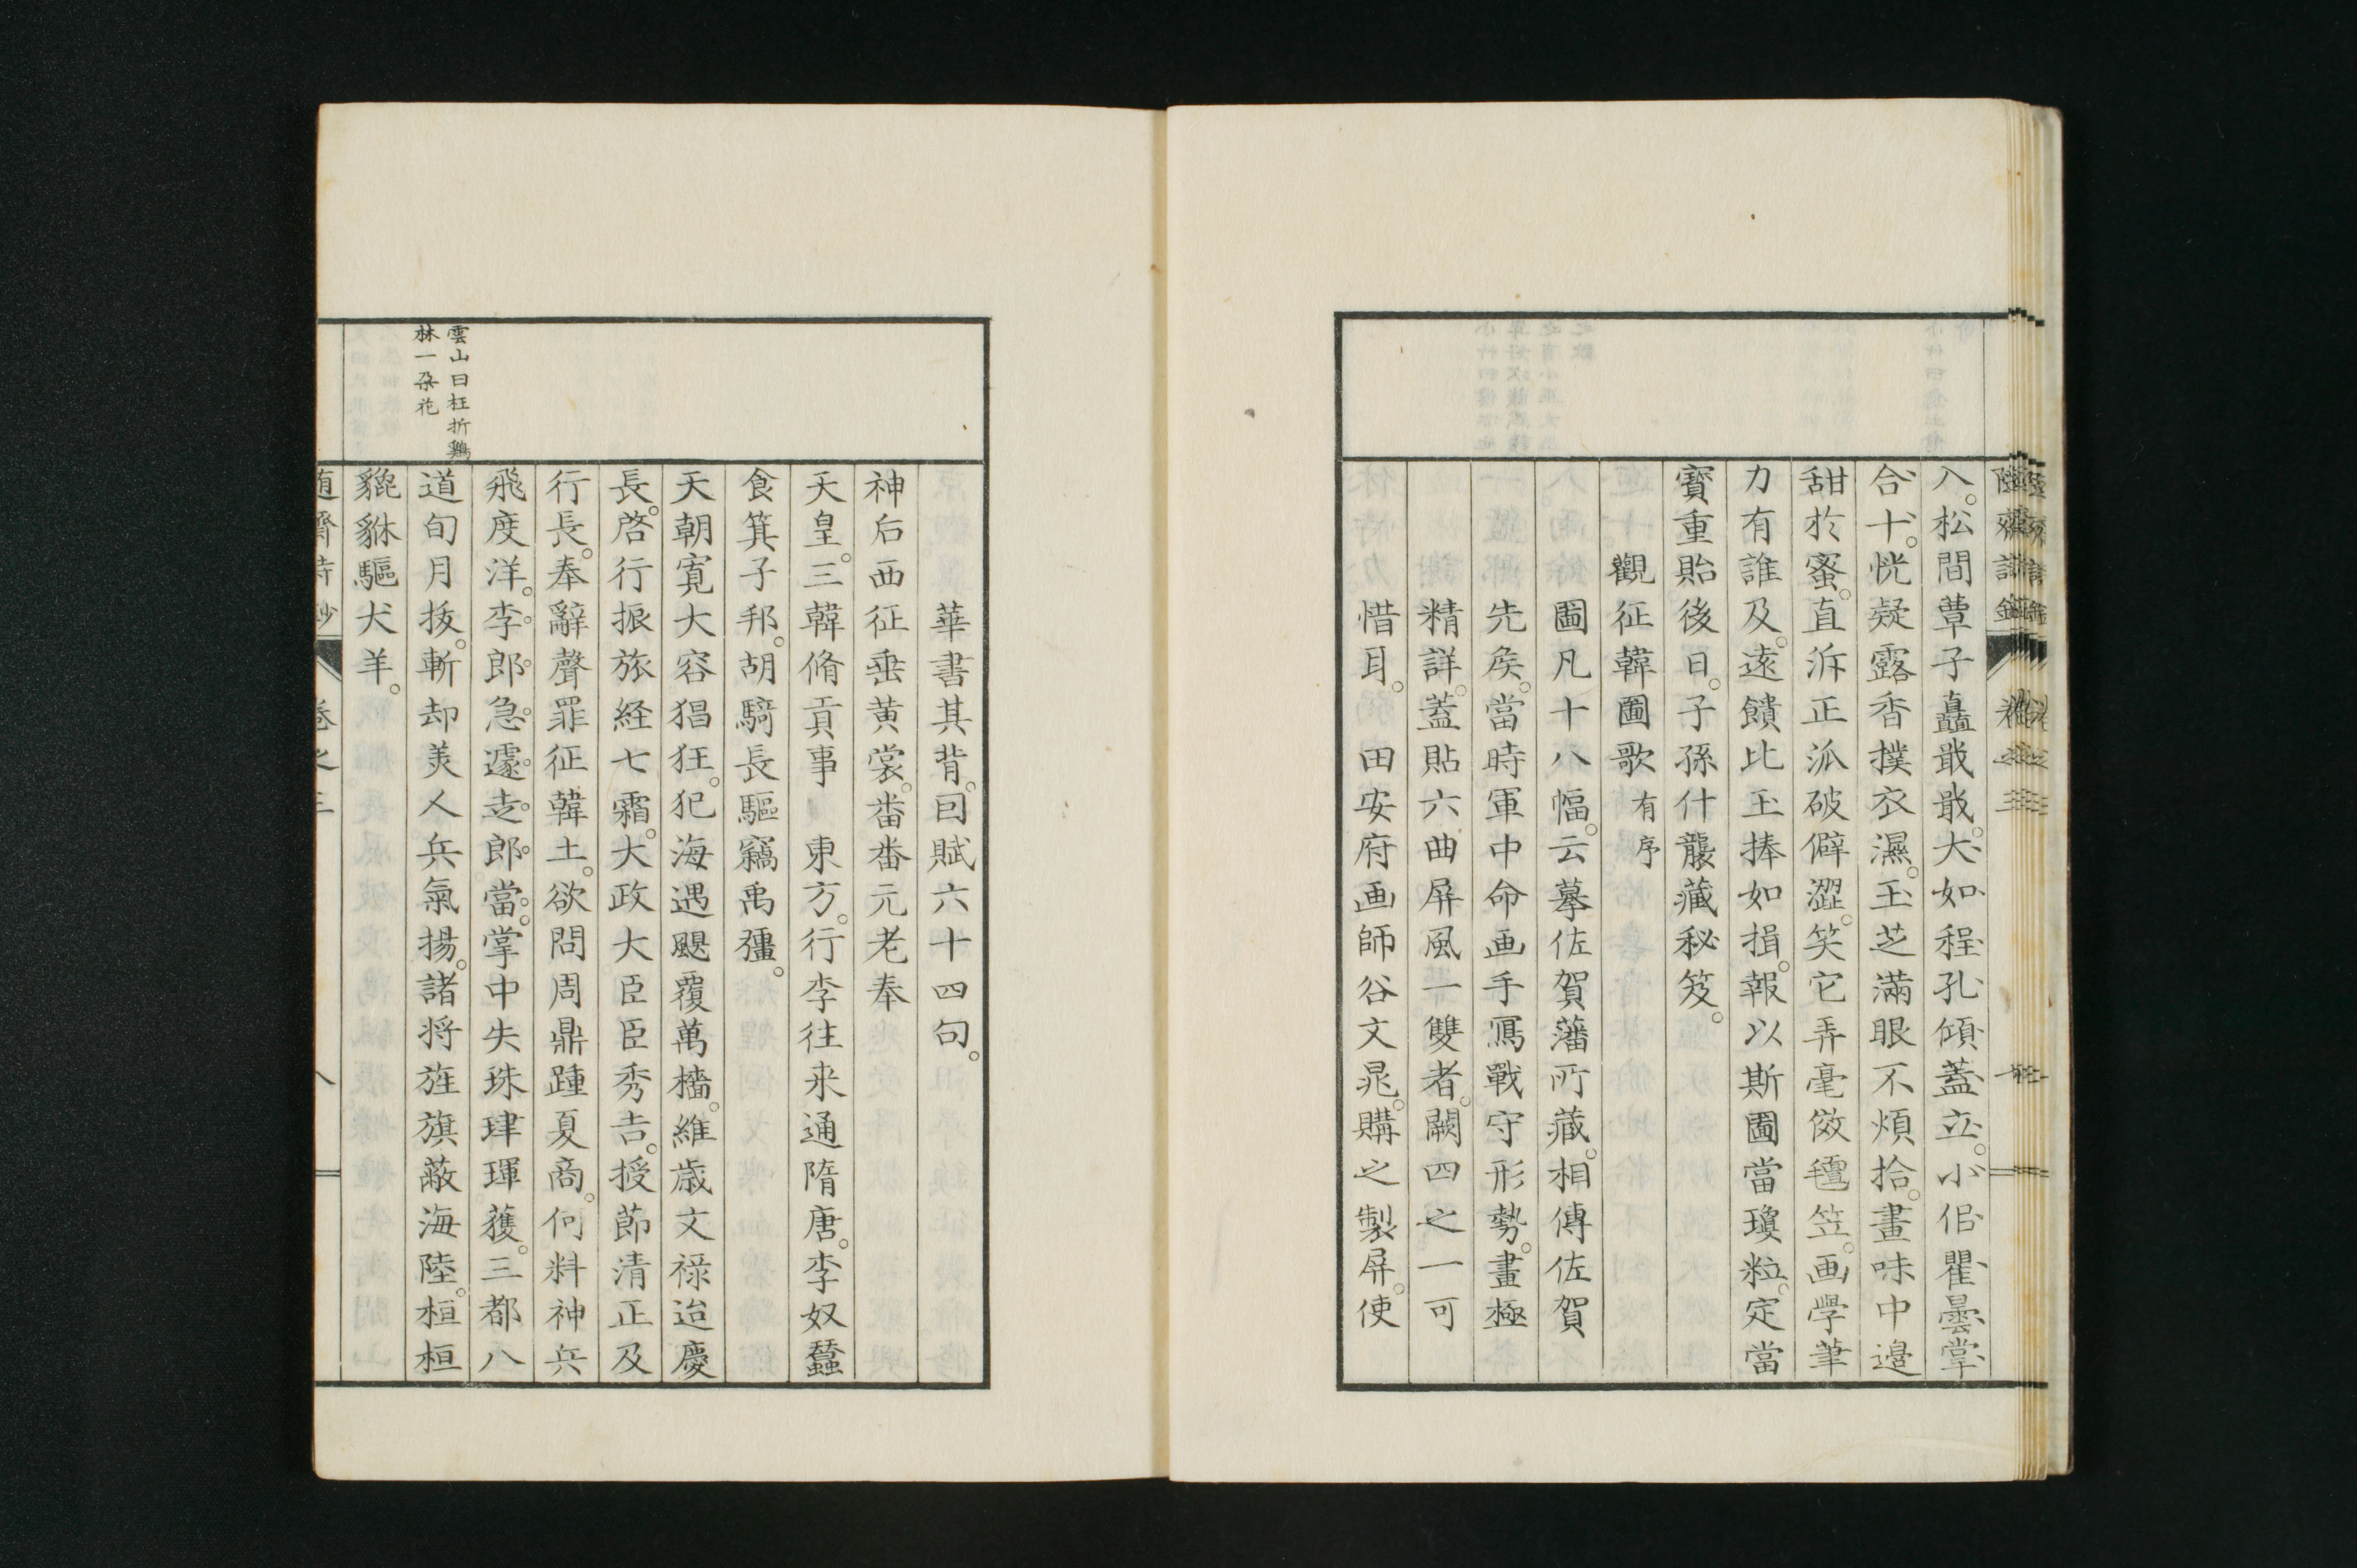 入。松間蕈子矗戢戢。大如程孔傾蓋立。小佀瞿曇掌
合十。恍疑露香撲衣濕。玉芝滿眼不煩拾。畫味中邉
甜於蜜。直泝正派破僻澀。笑它弄毫倣氊笠。画學筆
力有誰及。遠饋比玉捧如揖。報以斯圖當瓊粒。定當
寳重貽後日。子孫什襲藏秘笈。
觀征韓圖歌 有序
圖凡十八幅。云摹佐賀藩所藏。相傳佐賀
先矦。當時軍中命画手冩戰守形勢。畫極
精詳。蓋貼六曲屏風一雙者。闕四之一可
惜耳。 田安府画師谷文晁。購之製屏。使
華書其背。囙賦六十四句。
神后西征垂黄裳。番番元老奉
天皇。三韓脩貢事 東方。行李往来通隋唐。李奴蠶
食箕子邦。胡騎長驅竊禹彊。
天朝寛大容猖狂。犯海遇颶覆萬檣。維歳文禄迨慶
長。啓行振旅経七霜。大政大臣臣秀吉。授節清正及
行長。奉辭聲罪征韓土。欲問周鼎踵夏商。何料神兵
飛度洋。李郎急遽走郎當。掌中失珠珒琿獲。三都八
道旬月抜。斬却美人兵氣揚。諸将旌旗蔽海陸。桓桓
貔貅驅犬羊。
雲山曰枉折鷄
林一朶花
随齋詩鈔 卷之三 八